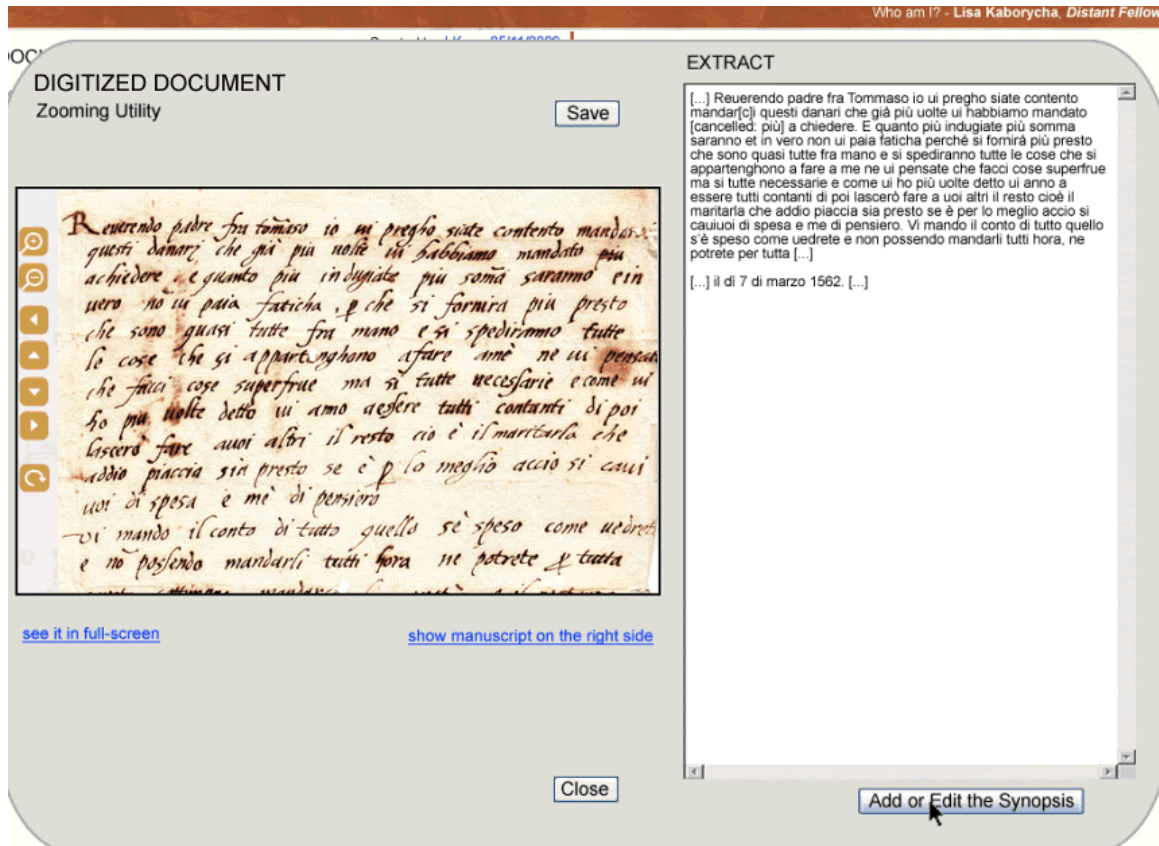 Who am I? - Lisa Kaborycha, Distant Fellow
DIGITIZED DOCUMENT
Zooming Utility
Save
Reuerendo padre fra tõmaso io ui pregho siate contento mandar
questi danarj che già piu uolte ui habbiamo mandato piu
achiedere e quanto piu indugiate piu somã saranno e in
uero nõ ui paia faticha, p che si fornira più presto
che sono quasi tutte fra mano e si spediranno tutte
le cose che si appartenghono afare amè ne ui pensate
che facci cose superfrue ma si tutte necessarie e come ui
ho più uolte detto ui anno aessere tutti contanti di poi
lascerò fare auoi altri il resto cio è il maritarla che
addio piaccia sia presto se è p lo meglio accio si caui
uoi di spesa e me di pensiero
vi mando il conto di tutto quello se speso come uedret
e nõ possendo mandarli tutti hora ne potrete p tutta
see it in full-screen
show manuscript on the right side
Close
EXTRACT
[...] Reuerendo padre fra Tommaso io ui pregho siate contento
mandar[c]i questi danari che già più uolte ui habbiamo mandato
[cancelled: più] a chiedere. E quanto più indugiate più somma
saranno et in vero non ui paia faticha perché si fornirà più presto
che sono quasi tutte fra mano e si spediranno tutte le cose che si
appartenghono a fare a me ne ui pensate che facci cose superfrue
ma si tutte necessarie e come ui ho più uolte detto ui anno a
essere tutti contanti di poi lascerò fare a uoi altri il resto cioè il
maritarla che addio piaccia sia presto se è per lo meglio accio si
cauiuoi di spesa e me di pensiero. Vi mando il conto di tutto quello
s'è speso come uedrete e non possendo mandarli tutti hora, ne
potrete per tutta [...]
[...] il dì 7 di marzo 1562. [...]
Add or Edit the Synopsis